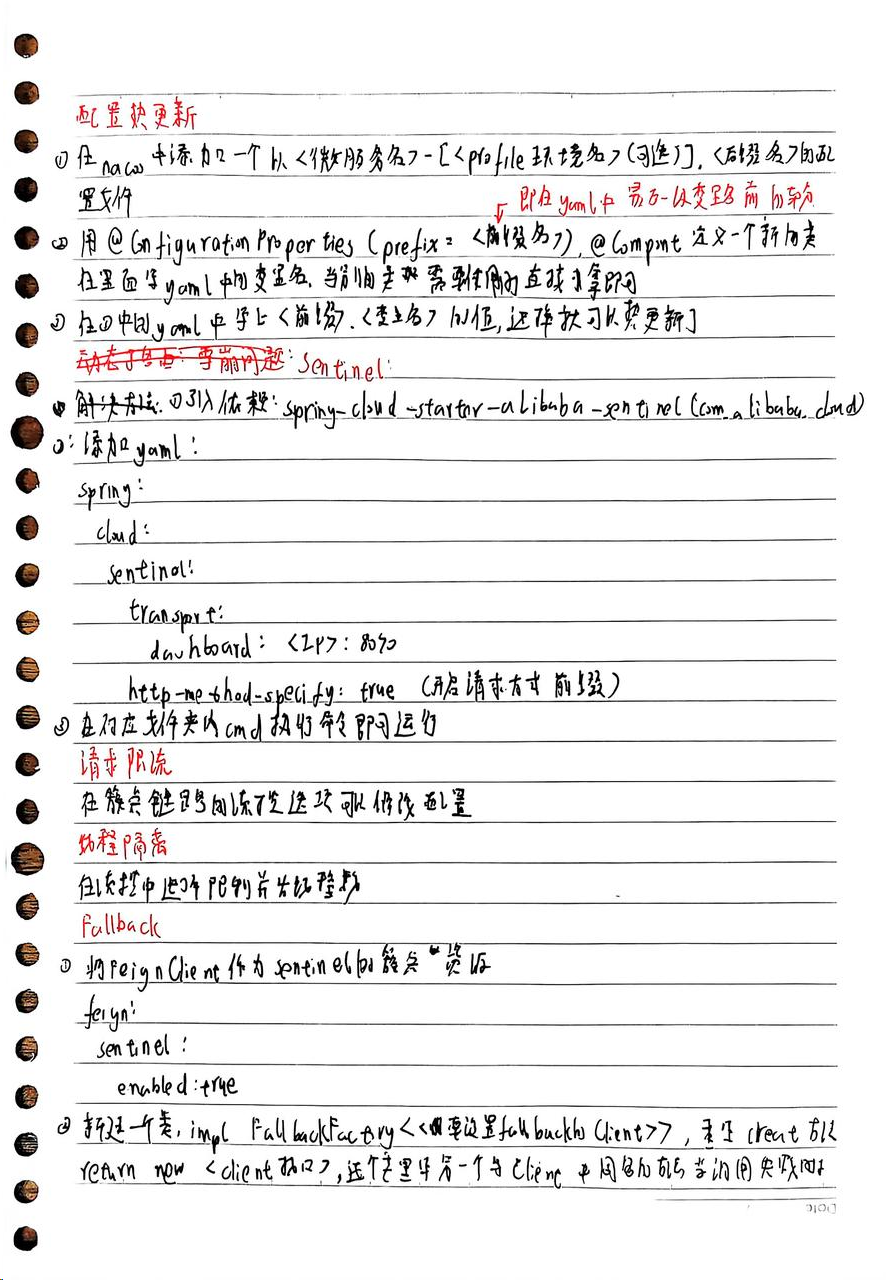 配置热更新
① 在nacos中添加一个以<微服务名>-[<profile环境名>(可选)].<后缀名>的配
置文件
即在yaml中 最后一级变量名前的部分
② 用@ConfigurationProperties(prefix=<前缀名>),@Compont定义一个新的类
在里面写yaml中的变量名,当别的类 需要使用时直接 拿即可
③ 在①中的yaml中写上<前缀>.<变量名>的值,这样就可以热更新了
雪崩问题: Sentinel:
解决方法:①引入依赖:spring-cloud-starter-alibaba-sentinel(com.alibaba.cloud)
②:添加yaml:
spring:
cloud:
sentinel:
transport:
dashboard: <IP>:8090
http-method-specify: true (开启请求方式前缀)
③ 在对应文件夹的cmd执行命令即可运行
请求限流
在簇点链路的流控选项可以修改配置
线程隔离
在流控中选择 并发线程数
Fallback
① 将FeignClient作为sentinel的簇点资源
feign:
sentinel:
enabled:true
② 新建一个类,impl FallbackFactory<<要设置fallback的Client>>,重写creat方法
return new <client接口>,这个里写 一个与Client中同名的方法当调用失败时
Date